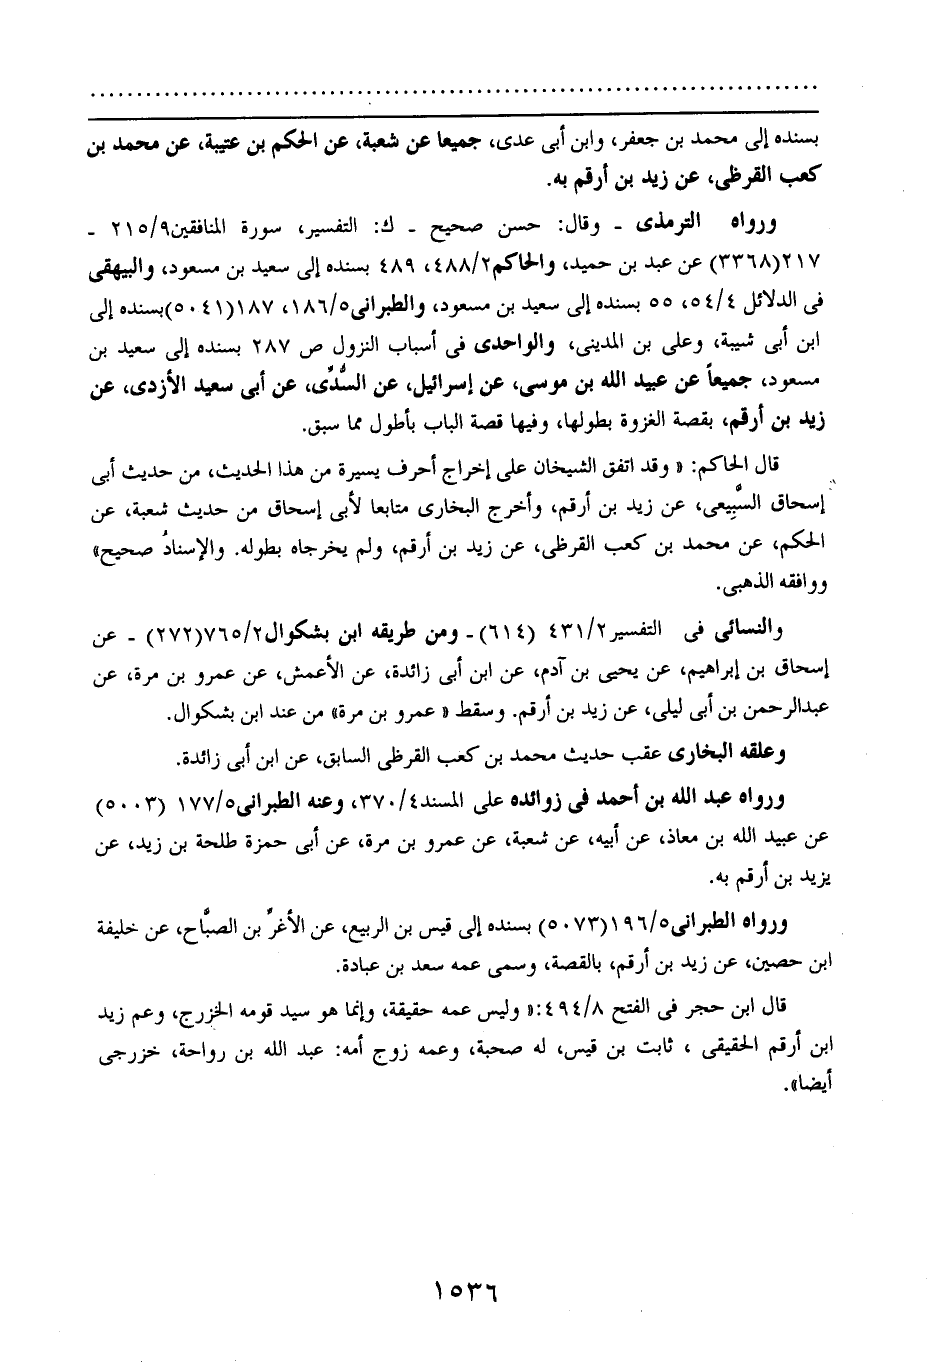 بسنده إلى محمد بن جعفر، وابن أبى عدى، جميعا عن شعبة، عن الحكم بن عتيبة، عن محمد بن
كعب القرظى، عن زيد بن أرقم به.
ورواه الترمذى ـ وقال: حسن صحيح ـ ك: التفسير، سورة المنافقين٢١٥/٩ ـ
٢١٧(٣٣٦٨) عن عبد بن حميد، والحاكم٤٨٨/٢، ٤٨٩ بسنده إلى سعيد بن مسعود، والبيهقى
فى الدلائل ٥٤/٤، ٥٥ بسنده إلى سعيد بن مسعود، والطبرانى١٨٦/٥، ١٨٧(٥٠٤١)بسنده إلى
ابن أبى شيبة، وعلى بن المدينى، والواحدى فى أسباب النزول ص ٢٨٧ بسنده إلى سعيد بن
مسعود، جميعاً عن عبيد الله بن موسى، عن إسرائيل، عن السُّدِّى، عن أبى سعيد الأزدى، عن
زيد بن أرقم، بقصة الغزوة بطولها، وفيها قصة الباب بأطول مما سبق.
قال الحاكم: « وقد اتفق الشيخان على إخراج أحرف يسيرة من هذا الحديث، من حديث أبى
إسحاق السَّبِيعى، عن زيد بن أرقم، وأخرج البخارى متابعا لأبى إسحاق من حديث شعبة، عن
الحكم، عن محمد بن كعب القرظى، عن زيد بن أرقم، ولم يخرجاه بطوله. والإسنادُ صحيح»
ووافقه الذهبى.
والنسائى فى التفسير٤٣١/٢ (٦١٤)ـ ومن طريقه ابن بشكوال٧٦٥/٢(٢٧٢) ـ عن
إسحاق بن إبراهيم، عن يحيى بن آدم، عن ابن أبى زائدة، عن الأعمش، عن عمرو بن مرة، عن
عبدالرحمن بن أبى ليلى، عن زيد بن أرقم. وسقط « عمرو بن مرة» من عند ابن بشكوال.
وعلقه البخارى عقب حديث محمد بن كعب القرظى السابق، عن ابن أبى زائدة.
ورواه عبد الله بن أحمد فى زوائده على المسند٣٧٠/٤، وعنه الطبرانى١٧٧/٥ (٥٠٠٣)
عن عبيد الله بن معاذ، عن أبيه، عن شعبة، عن عمرو بن مرة، عن أبى حمزة طلحة بن زيد، عن
يزيد بن أرقم به.
ورواه الطبرانى١٩٦/٥(٥٠٧٣) بسنده إلى قيس بن الربيع، عن الأغرِّ بن الصبَّاح، عن خليفة
ابن حصين، عن زيد بن أرقم، بالقصة، وسمى عمه سعد بن عبادة.
قال ابن حجر فى الفتح ٤٩٤/٨:« وليس عمه حقيقة، وإنما هو سيد قومه الخزرج، وعم زيد
ابن أرقم الحقيقى ، ثابت بن قيس، له صحبة، وعمه زوج أمه: عبد الله بن رواحة، خزرجى
أيضا».
١٥٣٦